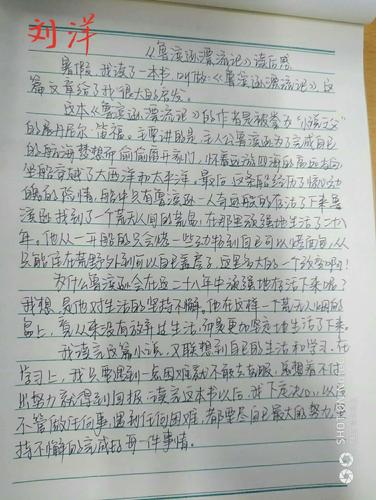 刘洋
《鲁滨逊漂流记》读后感
暑假,我读了一本书,叫做《鲁滨逊漂流记》这
篇文章给了我很大的启发。
这本《鲁滨逊漂流记》的作者是被誉为"小说之父"
的丹尼尔·笛福。主要讲的是:主人公鲁滨逊为了完成自己
的航海梦想而偷偷离开家门,怀着远游四海的高远志向,
坐船穿越了大西洋和太平洋。最后,这条船经历了惊心动
魄的险情,船中只有鲁滨逊一人奇迹般的存活了下来鲁
滨逊找到了一个荒无人间的荒岛,在那里顽强地生活了二十八
年。他从一开始的只会
只能住在荒野外到可以自己盖房子,这是多大的一个改变啊!
为什么鲁滨逊会在这二十八年中顽强地存活下来呢?
我想,是他对生活的坚持不懈。他在这样一个荒无人烟的
岛上,看从来没有放弃过生活,而是更加坚定地生活了下来。
我读完这篇小说,又联想到自己的生活和学习。在
学习上,我只要遇到一点困难就不敢去克服,总想着不付
出努力就得到回报。读完这本书以后,我下定决心,以后
不管做任何事,遇到任何困难,都要尽自己最大的努力,坚
持不懈的完成好每一件事情。
SHOT ON